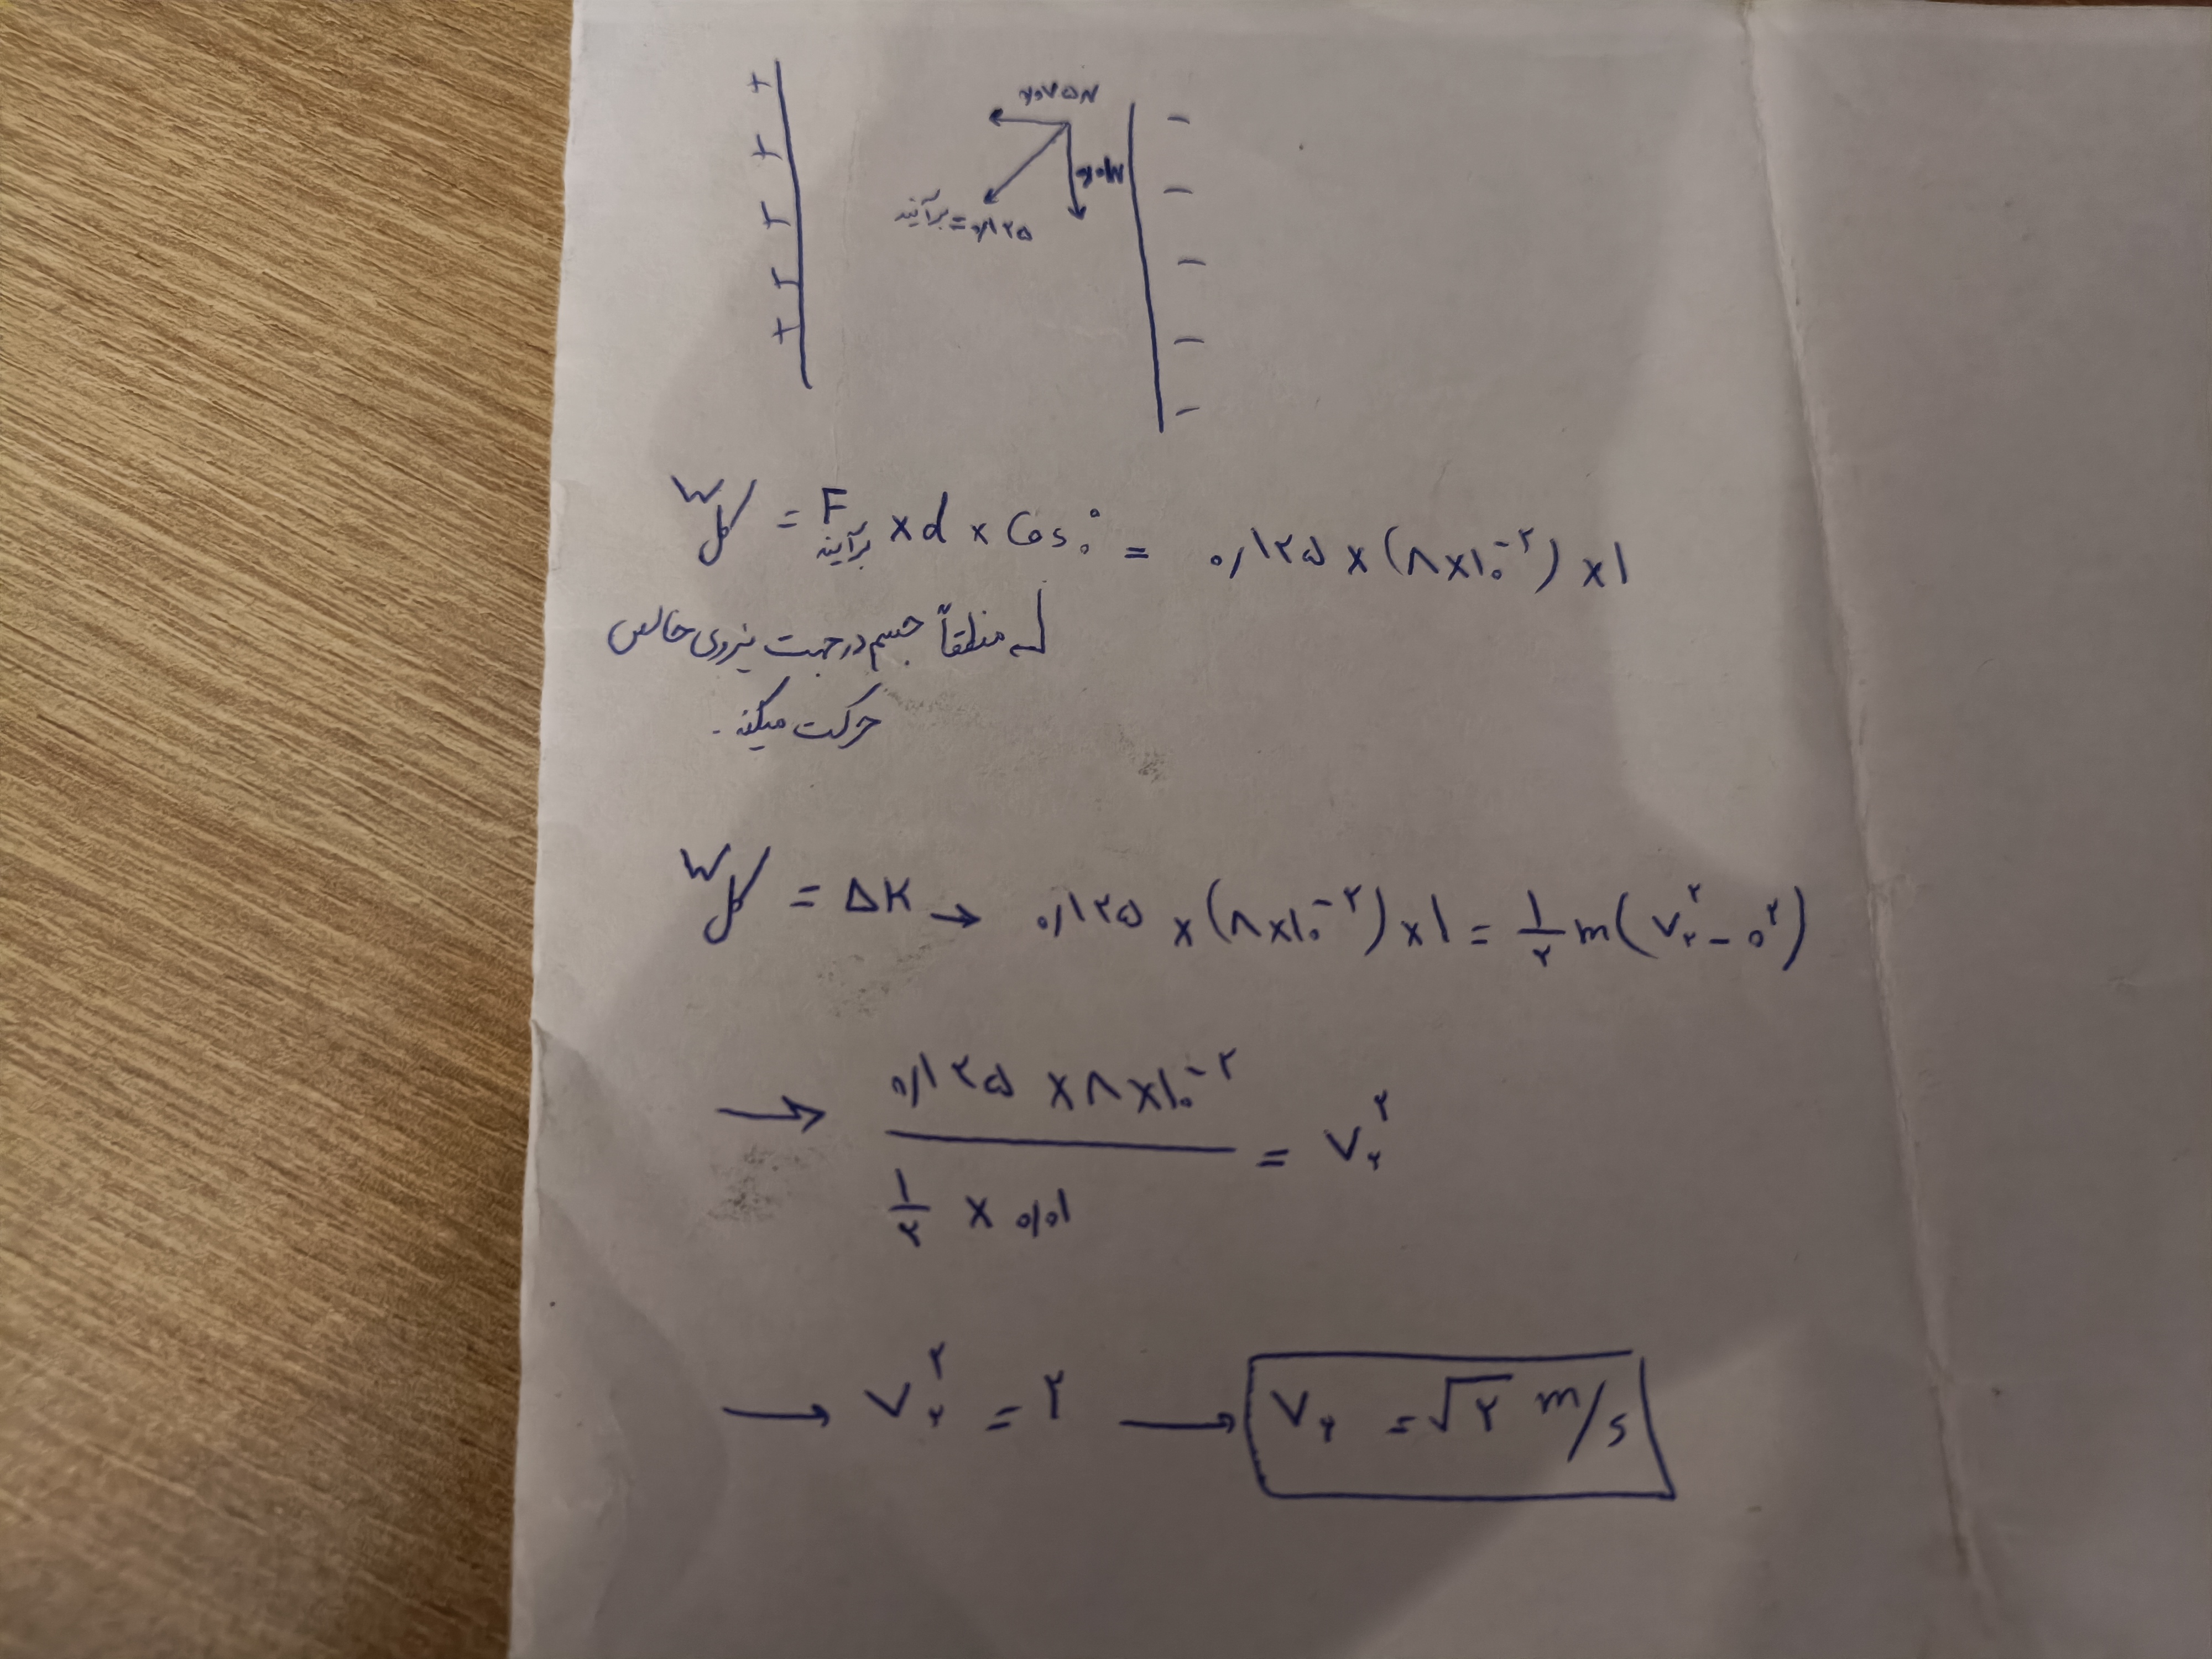 + + + + +
− − − − −
برآیند = ۰٫۱۲۵
W کل = F برآیند × d × Cos ۰° = ۰٫۱۲۵ × (۸×۱۰⁻²) × ۱
منطقاً جسم درجهت نیروی خالص
حرکت میکند.
W کل = ΔK → ۰٫۱۲۵ × (۸×۱۰⁻²) × ۱ = ۱/۲ m(V₂² − ۰²)
→ ۰٫۱۲۵ × ۸×۱۰⁻² / ۱/۲ × ۰٫۰۱ = V₂²
→ V₂² = ۲ → V₂ = √۲ m/s